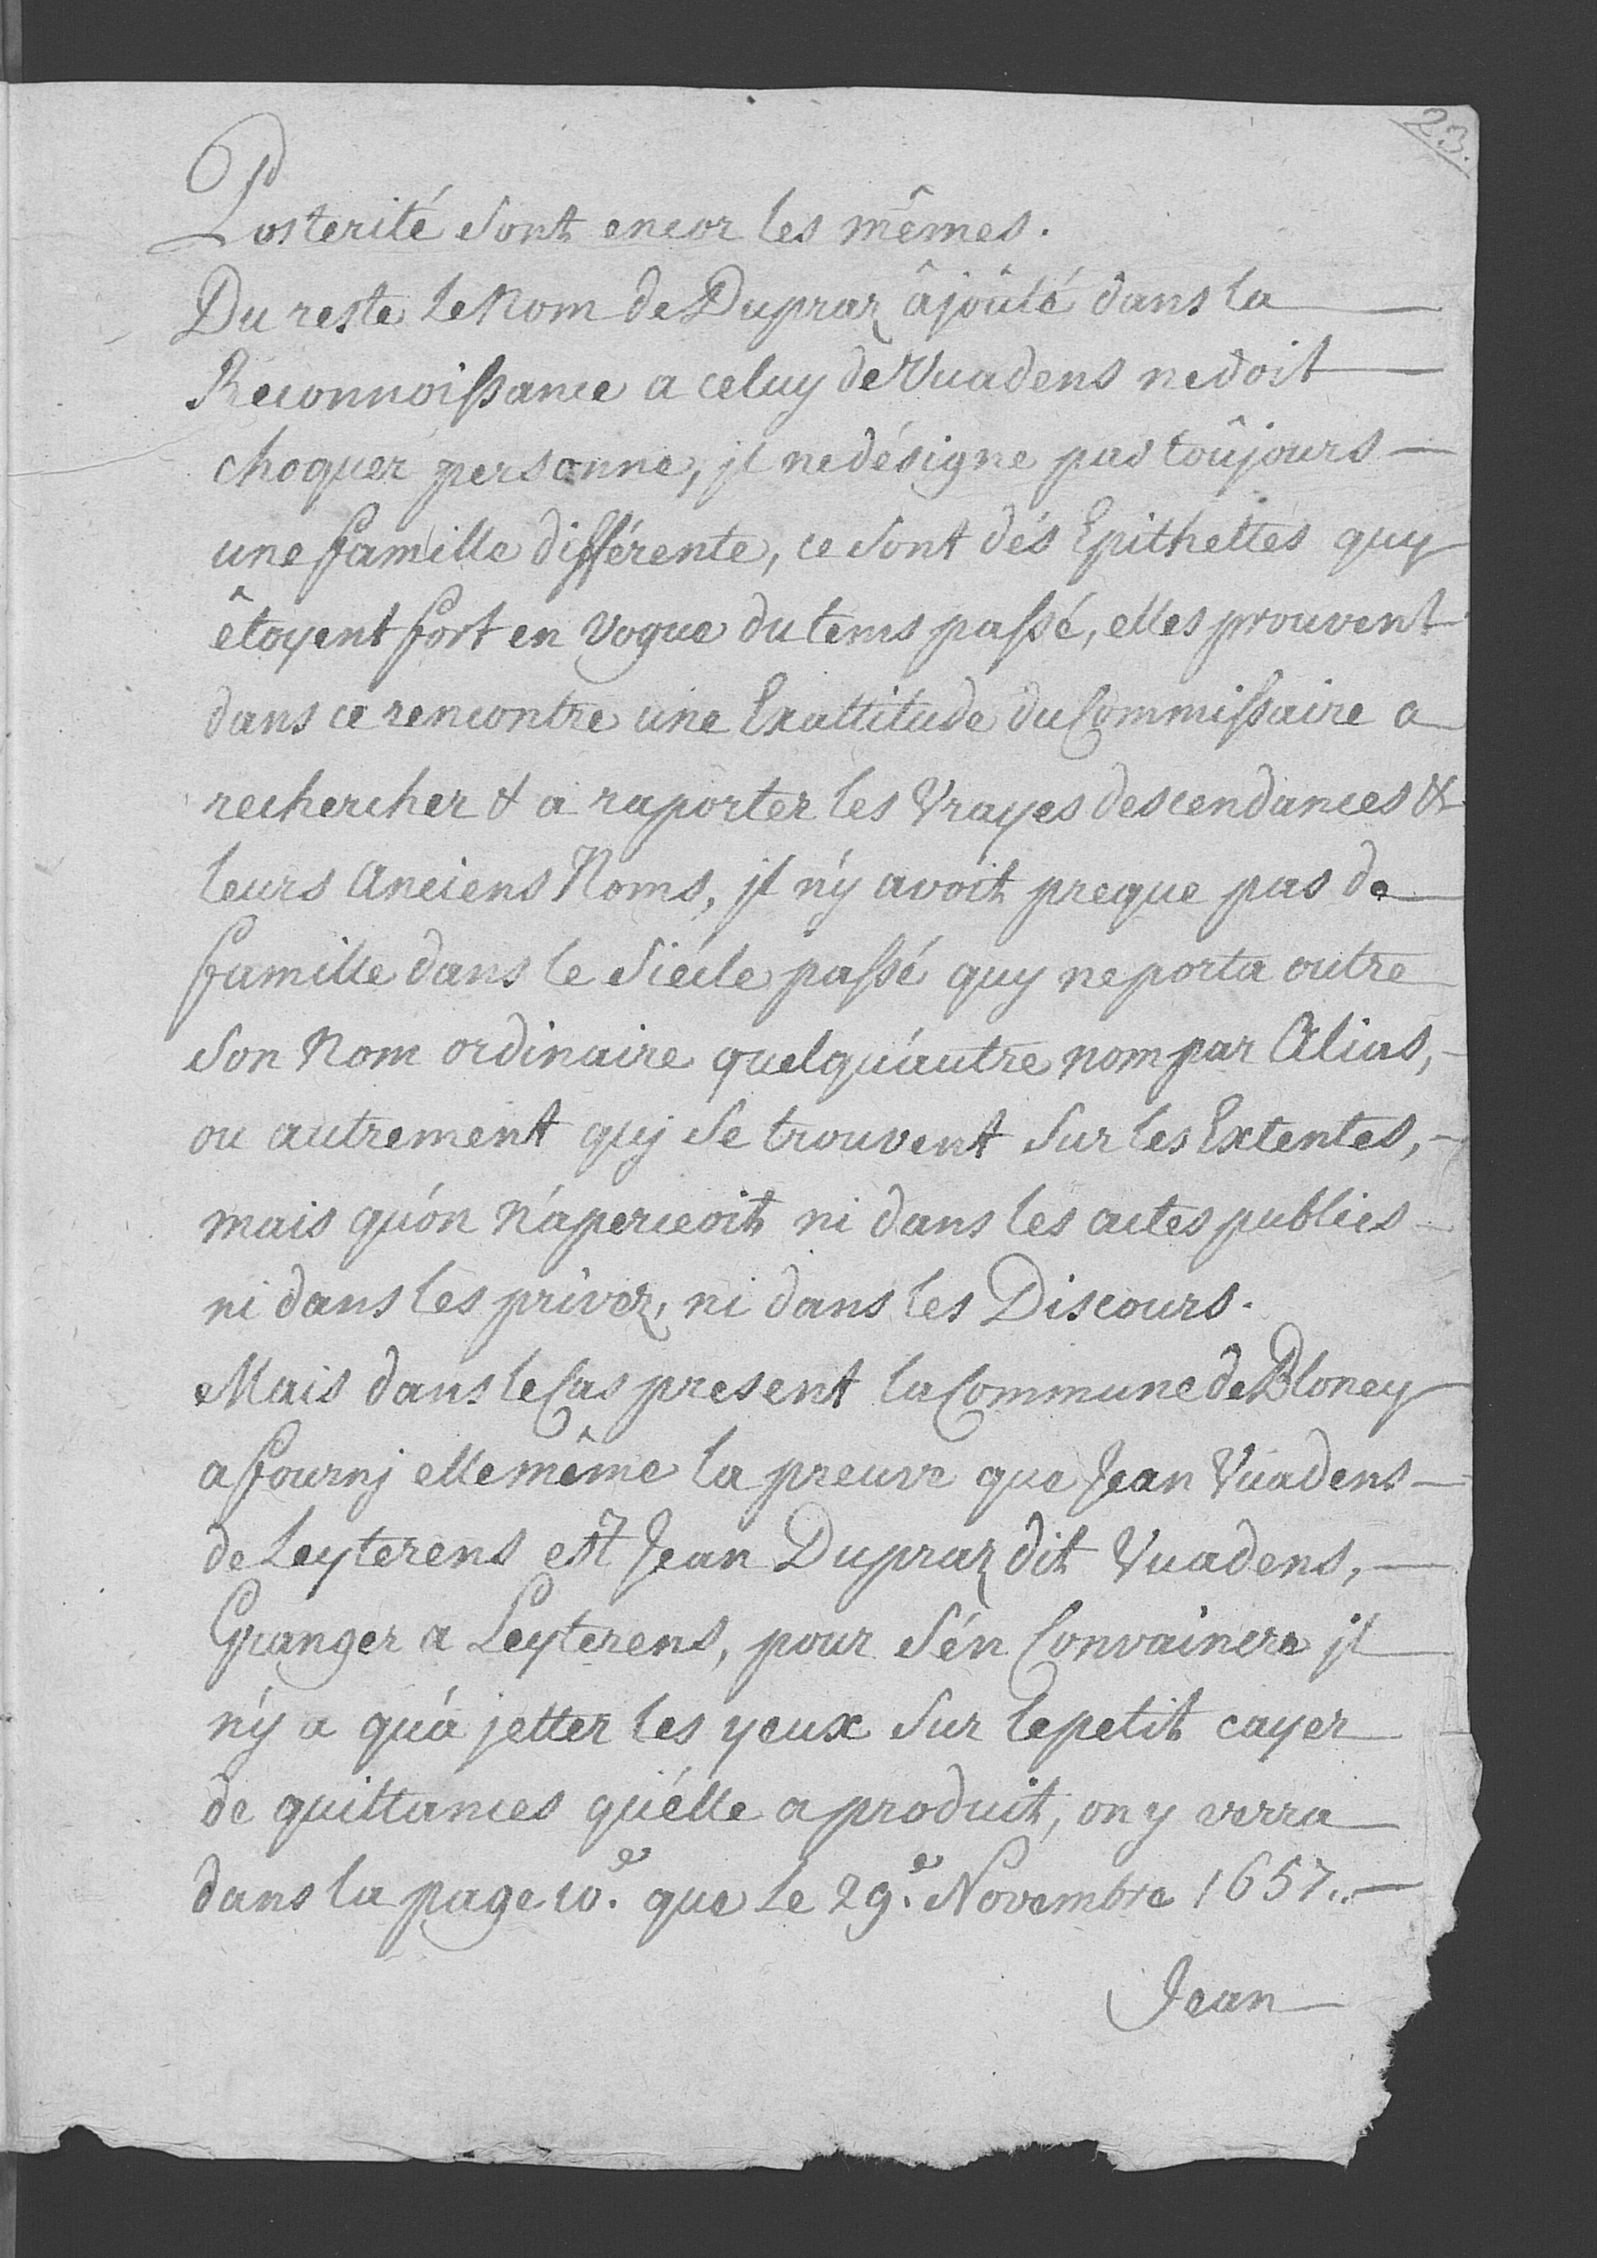 23.
Posterité sont encor les mêmes.
Du reste le Nom de Dupraz âjoûté dans la
Reconnoissance a celuy de Vuadens ne doit
choquer personne, jl ne désigne pas toûjours
une famille différente, ce sont dés Epithettes quy
êtoyent fort en vogue du tems passé, elles prouvent
dans ce rencontre une Exattitude du Commissaire a
rechercher & a raporter les Vrayes descendances &
leurs Anciens Noms, jl n'y avoit preque pas de
famille dans le Siécle passé quy ne porta outre
Son Nom ordinaire quelqu'autre nom par Alias,
ou autrement quj se trouvent sur les Extentes,
mais qu'on n'aperceoit ni dans les actes publics
ni dans les privez, ni dans les Discours.
Mais dans le Cas present la Commune de Bloney
a fournj elle même la preuve que Jean Vuadens
de Leyterens est Jean Dupraz dit Vuadens,
Granger a Leyterens, pour s'én Convaincre jl
n'y a qu'a jetter les yeux sur le petit cayer
de quittances qu'élle a produit, on y verra
dans la page 10.e que le 29.e Novembre 1657..
Jean